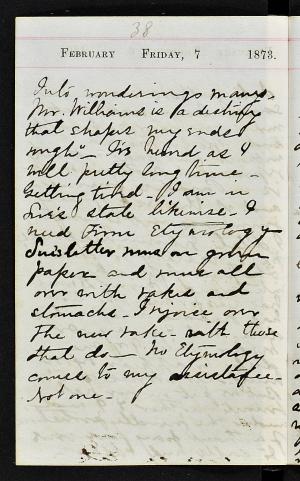 38
FEBRUARY FRIDAY, 7 1873.
Into wonderings many.
Mr. Williams is a destiny
that shapes my ends
nigh - It's hard as I
will putty long time -
Getting tired - I am in
Sue's state likewise - I
need From Etymology
Sui's letter was on green
paper - and runs all
over with rakes and
stomachs - I rejoice over
The new rake - rath those
that do - No Etymology
comes to my assistance -
Not one -